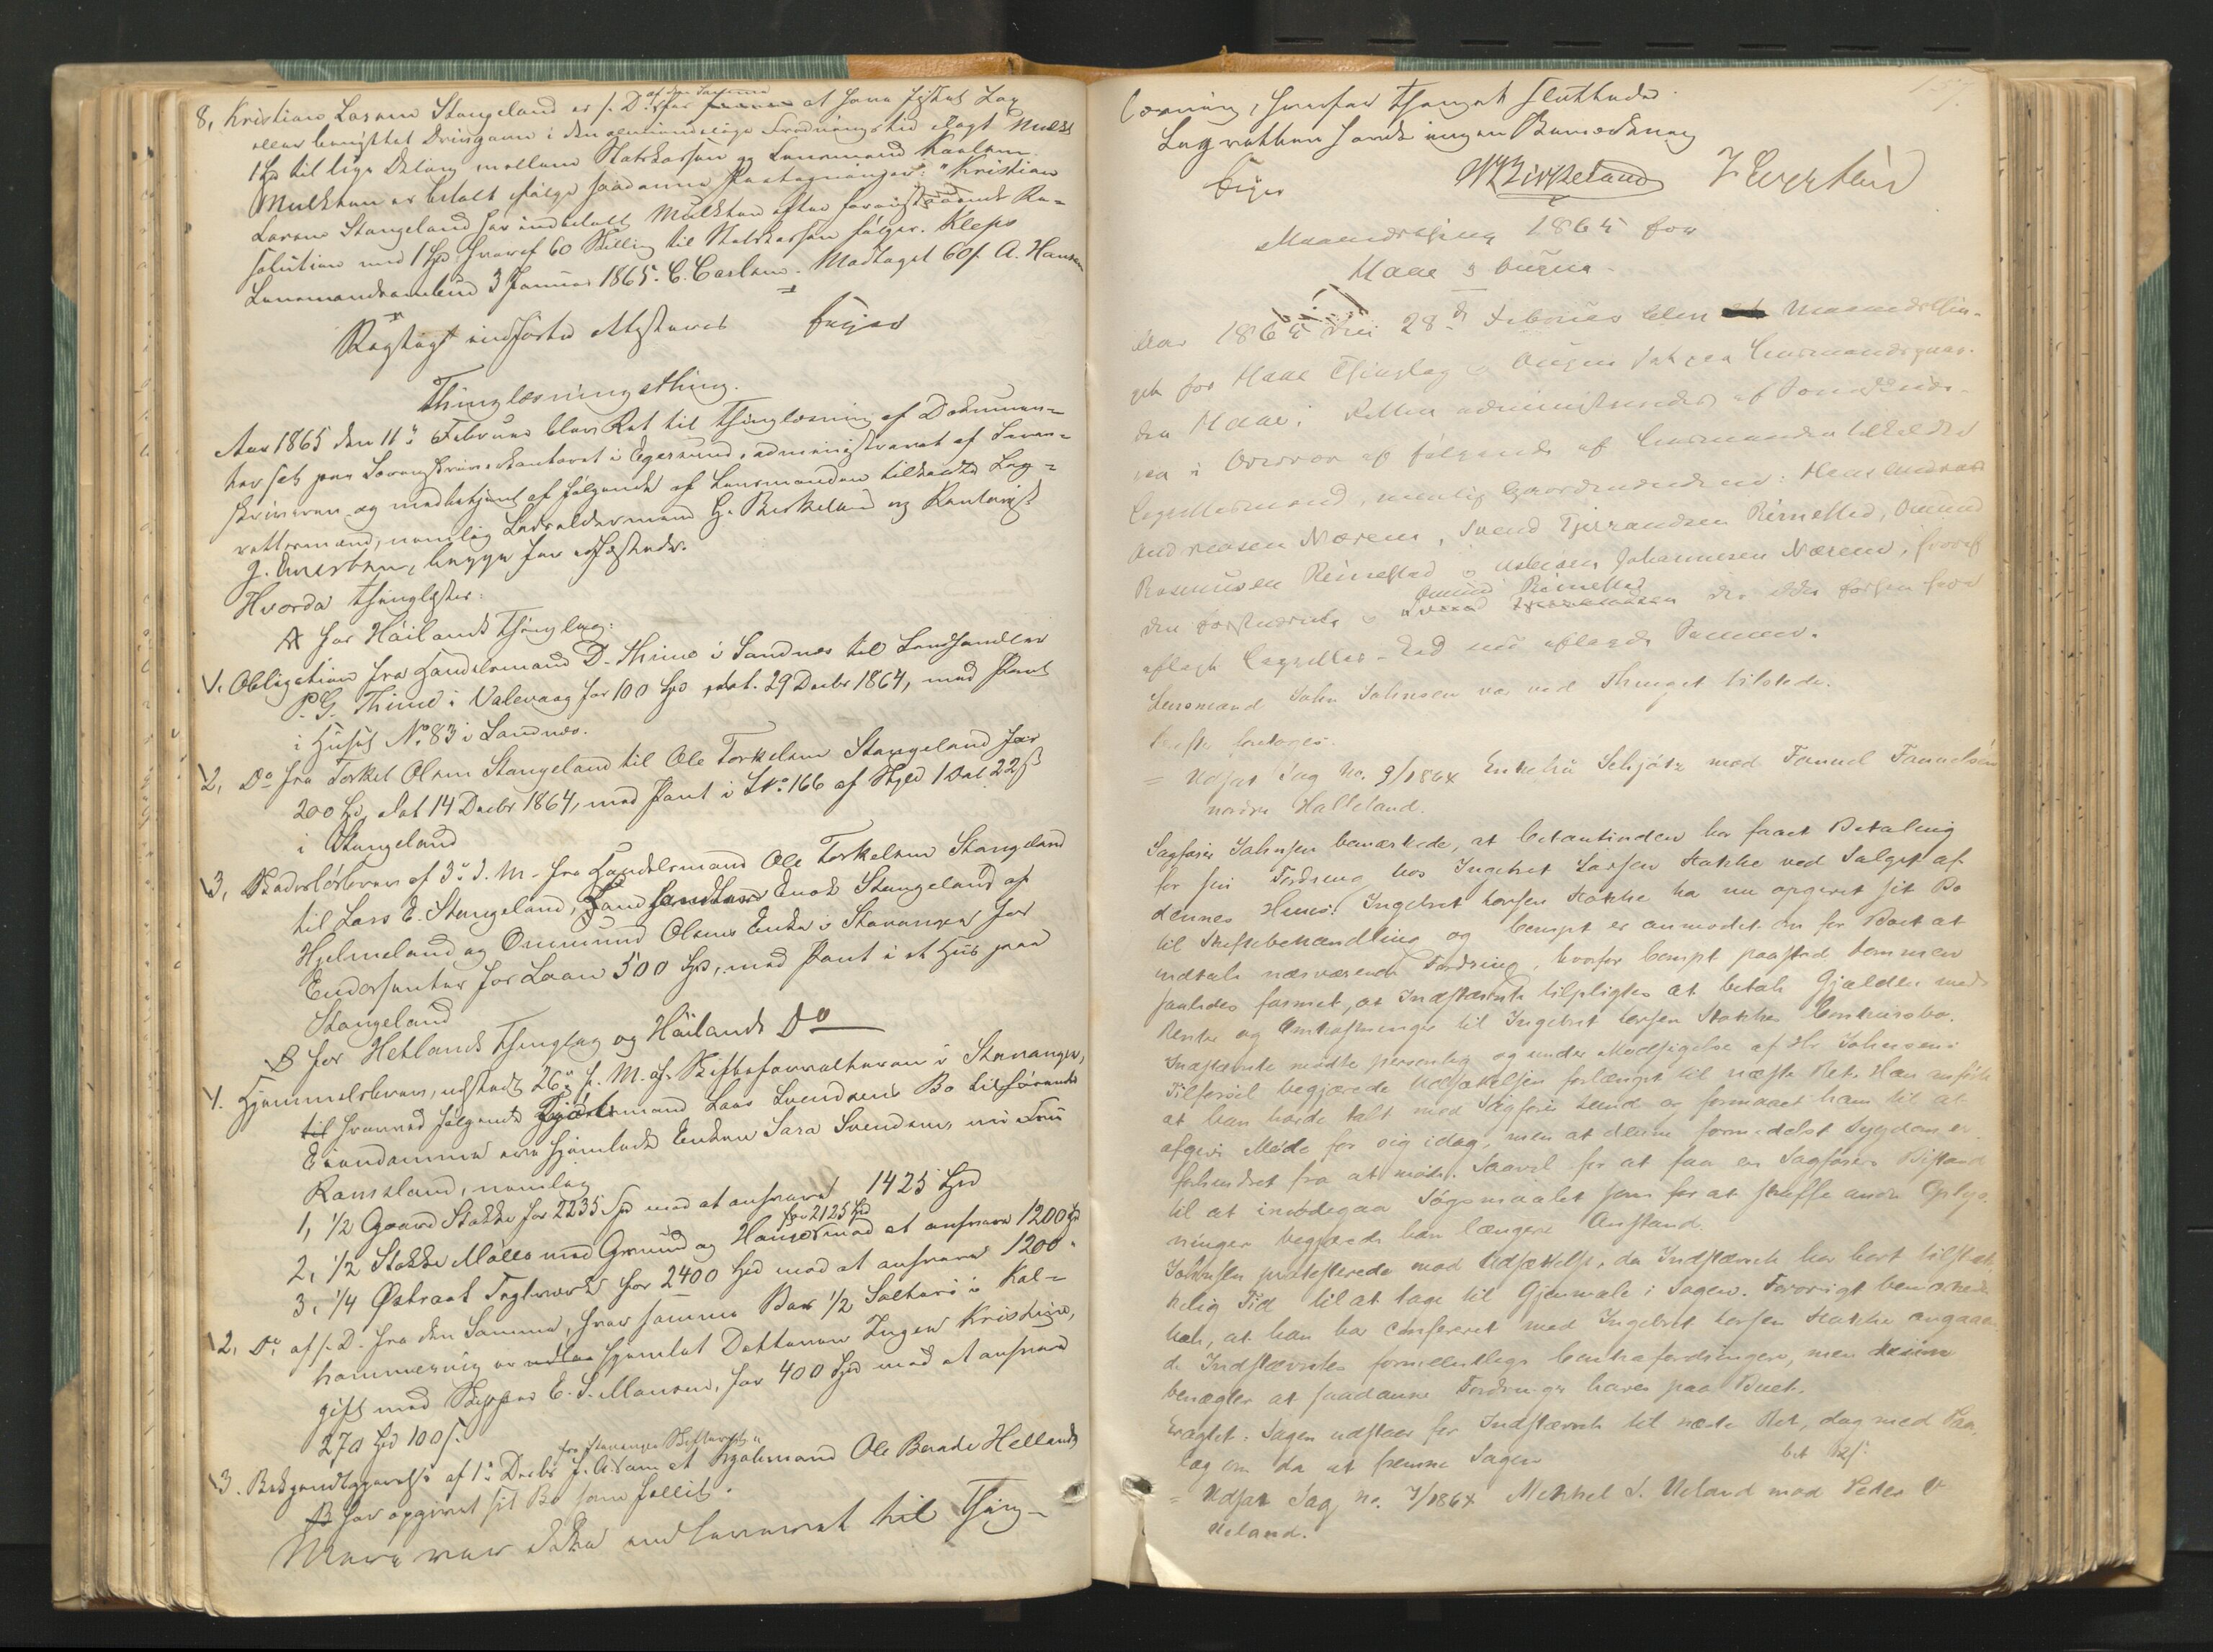 8, Kristian Larsen Stangeland er s. D. af den Samme
eller benyttet Drivgarn i den almindelige Fredningstid ilagt Mulkt
1 Spd til lige Deling mellem Statskassen og Lensmand Karlsen.
Mulkten er betalt ifølge saadanne Paategninger: "Kristian
Larsen Stangeland har indbetalt Mulkten efter foranstaaende Re-
solution med 1 Spd hvoraf 60 Skilling til Statskassen følger. Klepp
Lensmandsembede 3 Januar 1865. C. Carlsen. Modtaget 60 s. A. Hansen
Rigtigt indført attesteres Feyer
Thinglæsningsthing.
Aar 1865 den 11te Februar blev Ret til Thinglæsning af Dokumen-
ter sat paa Sorenskriverkontoret i Egersund, administreret af Soren-
skriveren og medbetjent af følgende af Lensmanden tilkaldte Lag-
rettesmænd, nemlig G. Birkeland og Kontorist
J. Evertsen, begge før
Hvorda thinglæstes:
A for Høilands Thinglag:
1. Obligation fra Handelsmand D. Thime i Sandnes til Landhandler
P. G. Thime i Valevaag for 100 Spd, dat. 29 Decbr 1864, med Pant
i Huset No. 83 i Sandnes.
2, Do fra Torkel Olsen Stangeland til Ole Torkelsen Stangeland for
200 Spd, dat 14 Decbr 1864, med Pant i L.No. 166 af Skyld 1 Dal. 22 s
i Stangeland
3, Skadesløsbrev af 3de d. M. fra Handelsmand Ole Torkelsen Stangeland
til Lars E. Stangeland, Landhandler Enok Stangeland af
Hjelmeland og Ommund Olsens Enke i Stavanger for
Endossenter for Laan 500 Spd, med Pant i et Huus paa
Stangeland
B for Hetlands Thinglag og Høilands Do
1. Hjemmelsbrev, udstedt 26de f. M. af Skifteforvalteren i Stavanger,
til hvorved følgende Lars Svendsens Bo tilhørende
Eiendomme ere hjemlede Enken Sara Svendsen, nu Fru
Ramsland, nemlig
1, 1/2 Gaard Stokke for 2235 Spd mod at ansvare 1425 Spd
2, 1/2 Stokke Mølle med Grund og Huuse for 2125 Spd mod at ansvare 1200 Spd
3, 1/4 Østraat Teglværk for 2400 Spd mod at ansvare 1200 "
2, Do af s. D. fra den Samme, hvor samme Boes 1/2 Salteri i Kal-
hammervig er hjemlet Datteren Inger Kristine,
gift med Skipper E. S. Monsen, for 400 Spd mod at ansvare
270 Spd 100 s.
3. Bekjendtgjørelse af 1ste Decbr f. A. fra Stavanger Skifteret om at Ole Berade Hellands
har opgivet sit Bo som fallit.
Mere var ikke indleveret til Thing-
læsning, hvorfor Thinget sluttedes.
Lagretten havde ingen Bemærkning
Feyer G Birkeland J Evertsen
Maanedsthing 1865 for
Haae Sogn.
Aar 1865 den 28de Februar blev Maanedsthin-
get for Haae Thinglag Sogn sat paa Lensmandsgaar-
den Haae. Retten administreredes af Sorenskrive-
ren i Overvær af følgende af Lensmanden tilkaldte
Lagrettesmænd, nemlig Gaardmændene: Hans Andreas
Andreasen Nærem, Svend Tjerandsen Rimestad, Omund
Rasmusen Rimestad og Asbjørn Johannesen Nærem, hvoraf
den førstnævnte og Omund Rimestad der ikke forhen have
aflagt Lagrettes-Eed nu aflagde Samme.
Lensmand John Johnsen var ved Thinget tilstede.
Derefter foretoges:
= Udsat Sag No. 9/1864 Enkefru Schjøtz mod Tønnel Tønnelsen
nordre Halleland.
Sagfører Johnsen bemærkede, at Citantinden har faaet Betaling
for sin Fordring hos Ingebret Larsen Stokke ved Salget af
dennes Huus. Ingebret Larsen Stokke har nu opgivet sit Bo
til Skiftebehandling og Compt er anmodet om for Boet at
indtale nærværende Fordring, hvorfor Compt paastod Dommen
saaledes formet, at Indstævnte tilpligtes at betale Gjælden med
Renter og Omkostninger til Ingebret Larsen Stokkes Concursbo.
Indstævnte mødte personlig og under Modsigelse af Hr. Johnsens
Tilførsel begjærede Udsættelsen forlænget til næste Ret. Han anførte
at han havde talt med Sagfører Lund og formaaet ham til at
afgive Møde for sig idag, men at denne formedelst Sygdom er
forhindret fra at møde. Saavel for at faa en Sagførers Bistand
til at imødegaa Søgsmaalet som for at skaffe andre Oplys-
ninger begjærede han længere Anstand.
Johnsen protesterede mod Udsættelse, da Indstævnte har havt tilstræk-
kelig Tid til at tage til Gjenmæle i Sagen. Forøvrigt bemærkede
han, at han har confereret med Ingebret Larsen Stokke angaaen-
de Indstævntes formeentlige Contrafordringer, men denne
benægter at saadanne Fordringer haves paa Boet.
Eragtet. Sagen udstaaer for Indstævnte til næste Ret, dog med For-
lag om da at fremme Sagen bet 12 s.
= Udsat Sag No. 7/1864 Mikkel S. Ueland mod Peder O
Ueland.